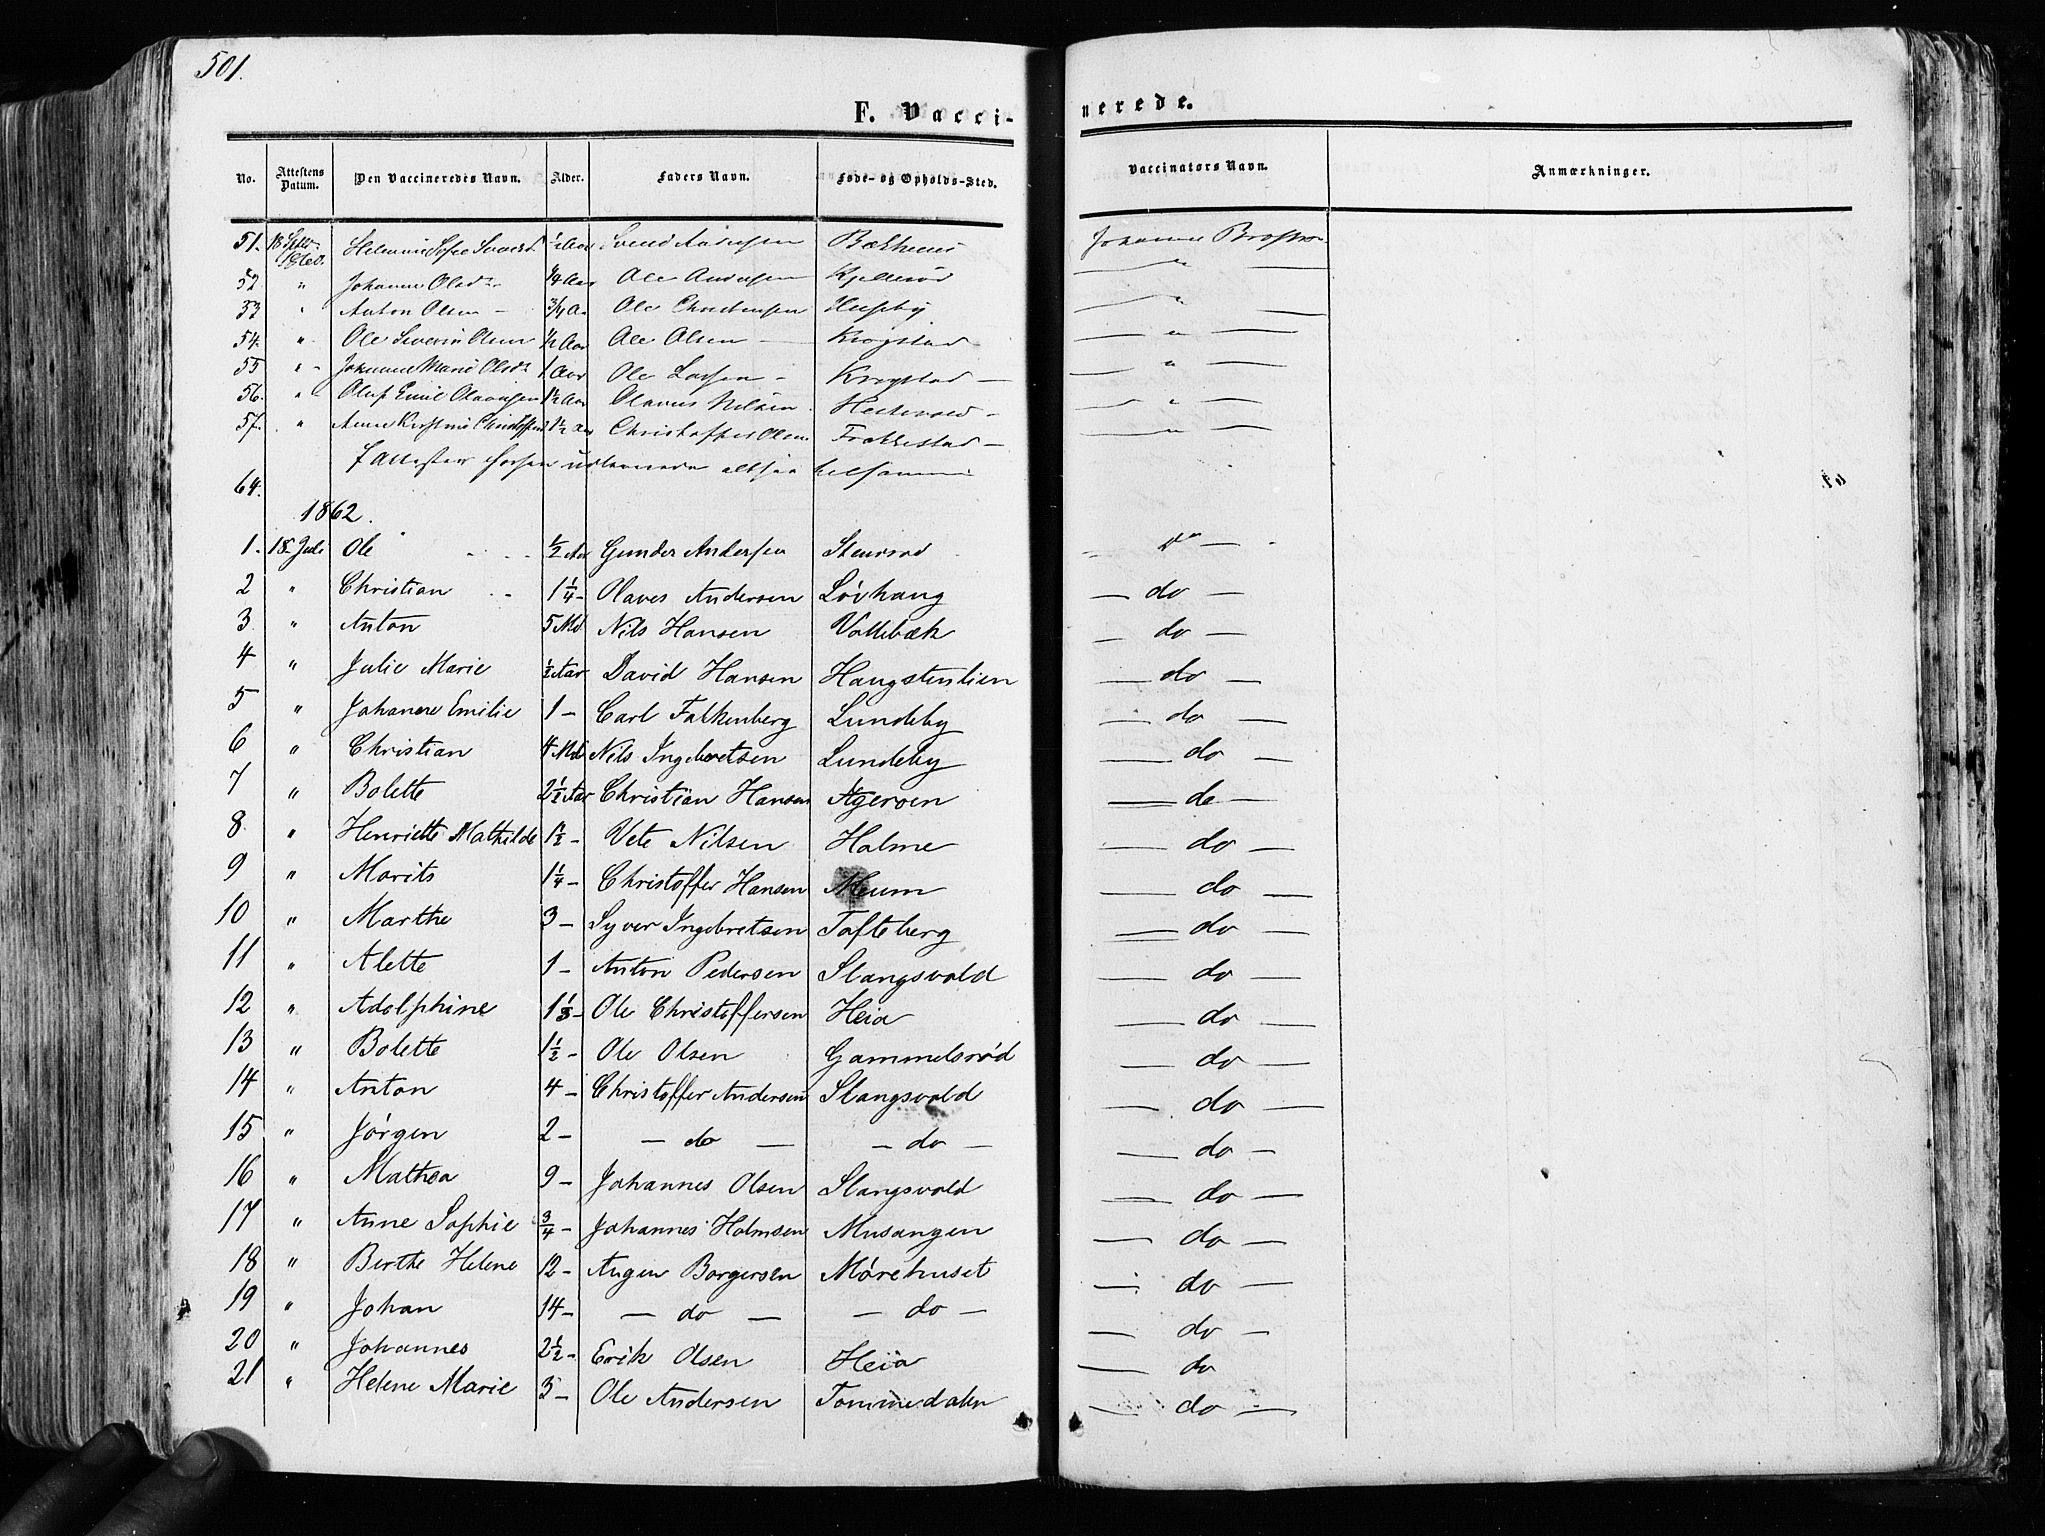 501.
F. Vacci- nerede.
No. Attestens Datum. Den Vaccineredes Navn. Alder. Faders Navn. Føde- og Opholds-Sted. Vaccinators Navn. Anmærkninger.
51. 18 Sofie ½ Aar Svend Andersen Johanne
52 " Johanne Olsdr ¼ Aar Ole Andersen
53 " Anton Olsen - ¾ Aa Ole Christensen Huseby "
54. " Ole Severin Olsen ½ Aar Ole Olsen Krogstad "
55 " Johanne Marie Olsdr 1 Aar Ole Larsen - Krogstad — "
56. " Oluf Emil Olavesen 1½ Aar Olaves Nilsen "
57. " Anne 1½ Aar Christoffer Olsen Frøkkestad — "
7 Attester altsaa tilsammen
64.
1862.
1. 18 Juli Ole ½ Aar Gunder Andersen Stensrød — do —
2 " Christian 1¼ - Olaves Andersen Løvhaug — do —
3. " Anton 5 Md. Nils Hansen Vattebæk — do —
4 " Julie Marie ½ Aar David Hansen Haugstenlien — do —
5 " Johanne Emilie 1 - Carl Falkenberg Lundeby — do —
6 " Christian 4 Md Nils Ingebretsen Lundeby — do —
7 " Bolette 2½ Aar Christian Hansen Ageroen — do —
8 " Henriette Mathilde 1½ - Vete Nilsen Holme — do —
9 " Morits 1¼ - Christoffer Hansen Meum — do —
10 " Marthe 3 - Syver Ingebretsen Tofteberg — do —
11 " Alette 1 - Anton Pedersen Slangsvold — do —
12 " Adolphine 1⅓ - Ole Christoffersen Heia — do —
13 " Bolette 1½ - Ole Olsen Gammelsrød — do —
14 " Anton 4 - Christoffer Andersen Slangsvold — do —
15 " Jørgen 2 - — do — — do — — do —
16 " Mathea 9 - Johannes Olsen Slangsvold — do —
17 " Anne Sophie ¾ - Johannes Holmsen Musangen — do —
18 " Berthe Helene 12 - Augen Borgersen Mørehuset — do —
19 " Johan 14 - — do — — do — — do —
20 " Johannes 2½ - Erik Olsen Heia — do
21 " Helene Marie 3 - Ole Andersen Tommedalen — do —